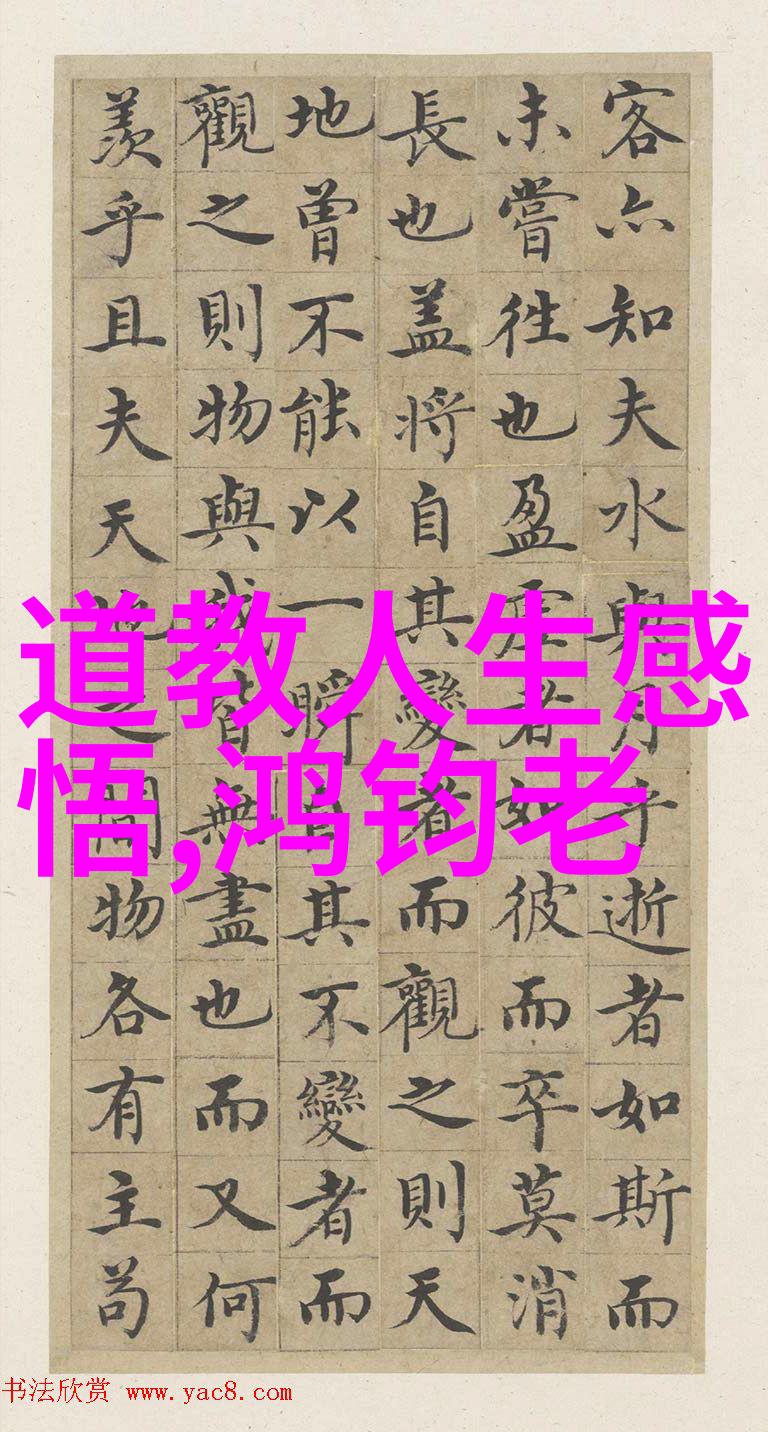 客亦知夫水與月乎逝者如斯而
未嘗往也盈虛者如彼而卒莫消
長也盖將自其變者而觀之則天
地曾不能以一瞬自其不變者而
觀之則物與我皆無盡也而又何
羨乎且夫天地之間物各有主苟
道教人生感
悟,鸿钧老
书法欣赏 www.yac8.com